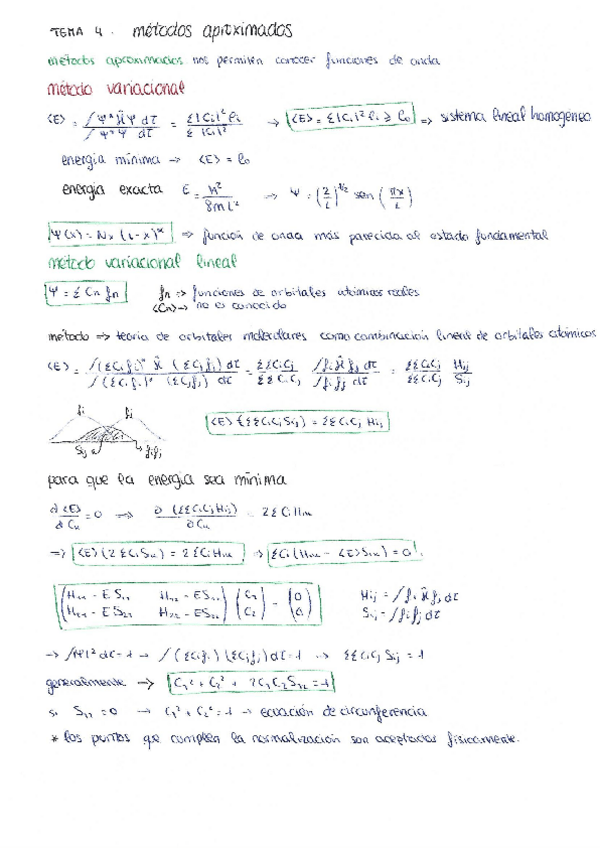 TEMA 4. métodos aproximados
métodos aproximados nos permiten conocer funciones de onda
método variacional
<E> = ∫Ψ*ĤΨ dτ / ∫Ψ*Ψ dτ = Σ|Ci|² Ei / Σ|Ci|² → <E> = Σ|Ci|² Ei ≥ E0 => sistema lineal homogeneo
energía mínima → <E> = E0
energía exacta E = h² / 8mL² → Ψ = (2/L)^1/2 sen (πx/L)
Ψ(x) = Nx (L-x)^α => función de onda más parecida al estado fundamental
método variacional lineal
Ψ = Σ Cn fn fn => funciones de orbitales atómicos reales
<Cn> → no es conocido
método => teoría de orbitales moleculares como combinación lineal de orbitales atómicos
<E> = ∫(ΣCifi)* Ĥ (ΣCjfj) dτ / ∫(ΣCifi)* (ΣCjfj) dτ = ΣΣCiCj / ΣΣCiCj ∫fiĤfj dτ / ∫fifj dτ = ΣΣCiCj / ΣΣCiCj Hij / Sij
fi fj
Sij fifj
<E> (ΣΣCiCjSij) = ΣΣCiCj Hij
para que la energía sea mínima
∂<E> / ∂Ck = 0 → ∂(ΣΣCiCjHij) / ∂Ck = 2ΣCiHik
=> <E>(2ΣCiSik) = 2ΣCiHik => ΣCi(Hik - <E>Sik) = 0
(H11 - ES11 H12 - ES12) (C1) = (0) Hij = ∫fiĤfj dτ
(H21 - ES21 H22 - ES22) (C2) (0) Sij = ∫fifj dτ
→ ∫|Ψ|² dτ = 1 → ∫(ΣCifi)(ΣCjfj) dτ = 1 → ΣΣCiCj Sij = 1
generalmente → C1² + C2² + 2C1C2S12 = 1
si S12 = 0 → C1² + C2² = 1 → ecuación de circunferencia
* los puntos que cumplen la normalización son aceptados físicamente.